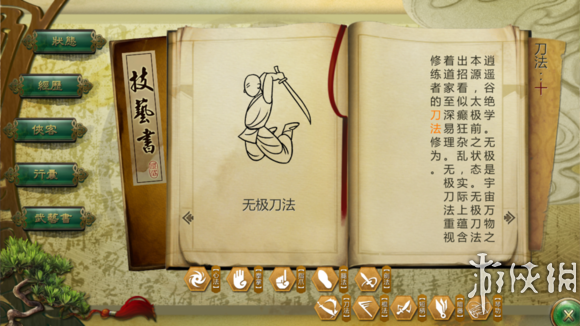 狀態
經歷
俠客
行囊
技藝書
技藝書
无极刀法
刀法：十
逍遥谷绝学。无极是宇宙万物之
本源，太极前之状态。无极刀法
出招看似癫狂杂乱，实际上蕴含
着道家至深易理。无极刀法重视
修练者的刀法修为。
游侠网